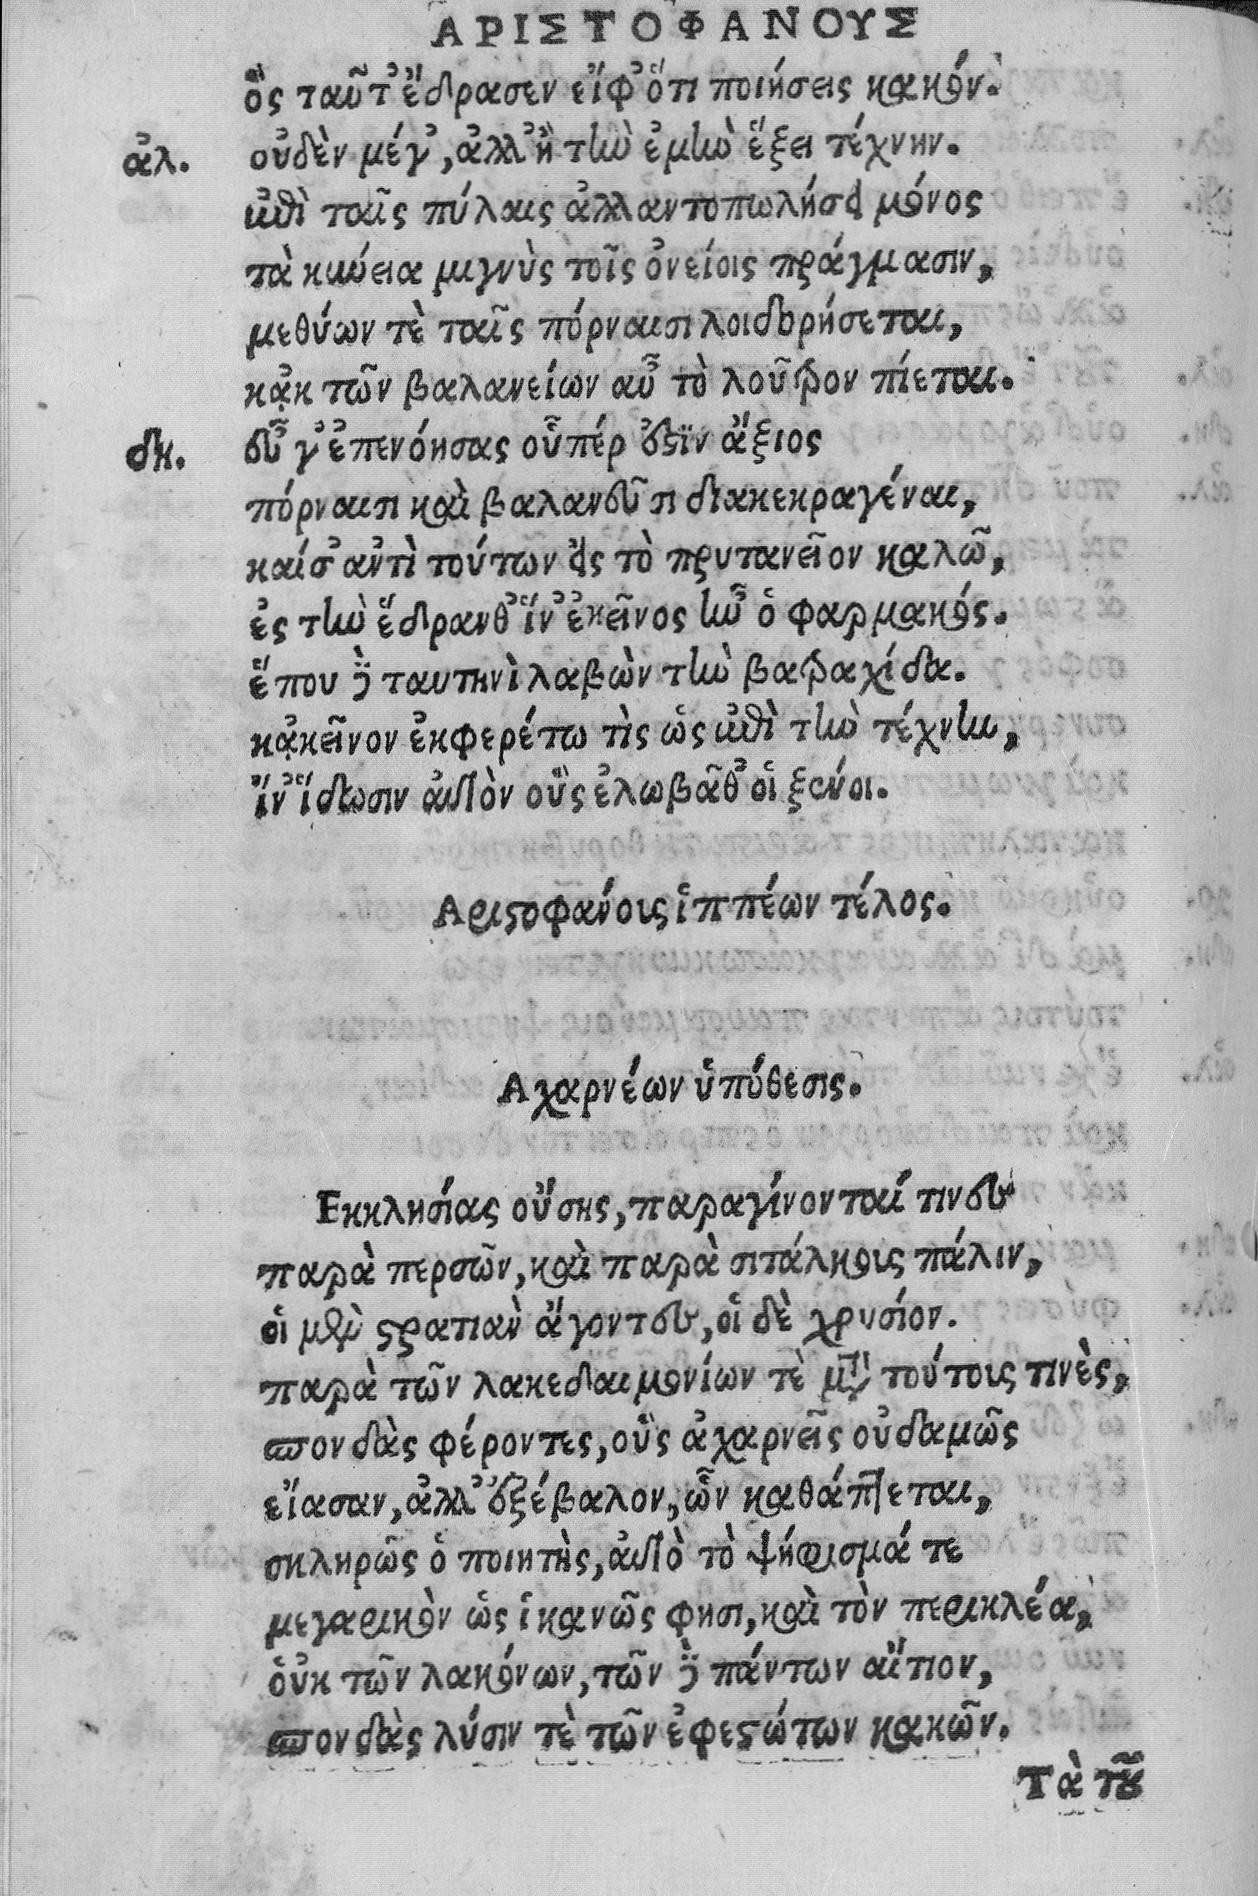 ΑΡΙΣΤΟΦΑΝΟΥΣ
ὃς ταῦτ' ἔδρασεν εἴφ' ὅτι ποιήσεις κακόν.
ἀλ. οὐδὲν μέγ', ἀλλ' ἢ τὴν ἐμὴν ἕξει τέχνην.
ἐπὶ ταῖς πύλαις ἀλλαντοπωλήσει μόνος
τὰ κύνεια μιγνὺς τοῖς ὀνείοις πράγμασιν,
μεθύων τὲ ταῖς πόρναισι λοιδορήσεται,
κᾀκ τῶν βαλανείων αὖ τὸ λοῦτρον πίεται.
δη. εὖ γ' ἐπενόησας οὗπέρ ἐστὶν ἄξιος
πόρναισι καὶ βαλανεῦσι διακεκραγέναι,
καί σ' ἀντὶ τούτων εἰς τὸ πρυτανεῖον καλῶ,
ἐς τὴν ἕδραν θ' ἵν' ἐκεῖνος ἦν ὁ φαρμακός.
ἕπου δὲ ταυτηνὶ λαβὼν τὴν βατραχίδα.
κᾀκεῖνον ἐκφερέτω τὶς ὡς ἐπὶ τὴν τέχνην,
ἵν' ἴδωσιν αὐτὸν οὓς ἐλωβᾶθ' οἱ ξένοι.
Αριστοφάνους ἱππέων τέλος.
Αχαρνέων ὑπόθεσις.
Εκκλησίας οὔσης, παραγίνονταί τινες
παρὰ περσῶν, καὶ παρὰ σιτάλκους πάλιν,
οἱ μὲν στρατιὰν ἄγοντες, οἱ δὲ χρυσίον.
παρὰ τῶν λακεδαιμονίων τὲ μετὰ τούτους τινὲς,
σπονδὰς φέροντες, οὓς ἀχαρνεῖς οὐδαμῶς
εἴασαν, ἀλλ' ἐξέβαλον, ὧν καθάπτεται,
σκληρῶς ὁ ποιητὴς, αὐτὸ τὸ ψήφισμά τε
μεγαρικὸν ὡς ἱκανῶς φησι, καὶ τὸν περικλέα,
ὀυκ τῶν λακόνων, τῶν δὲ πάντων αἴτιον,
σπονδὰς λύσιν τὲ τῶν ἐφεστώτων κακῶν.
Τὰ τοῦ